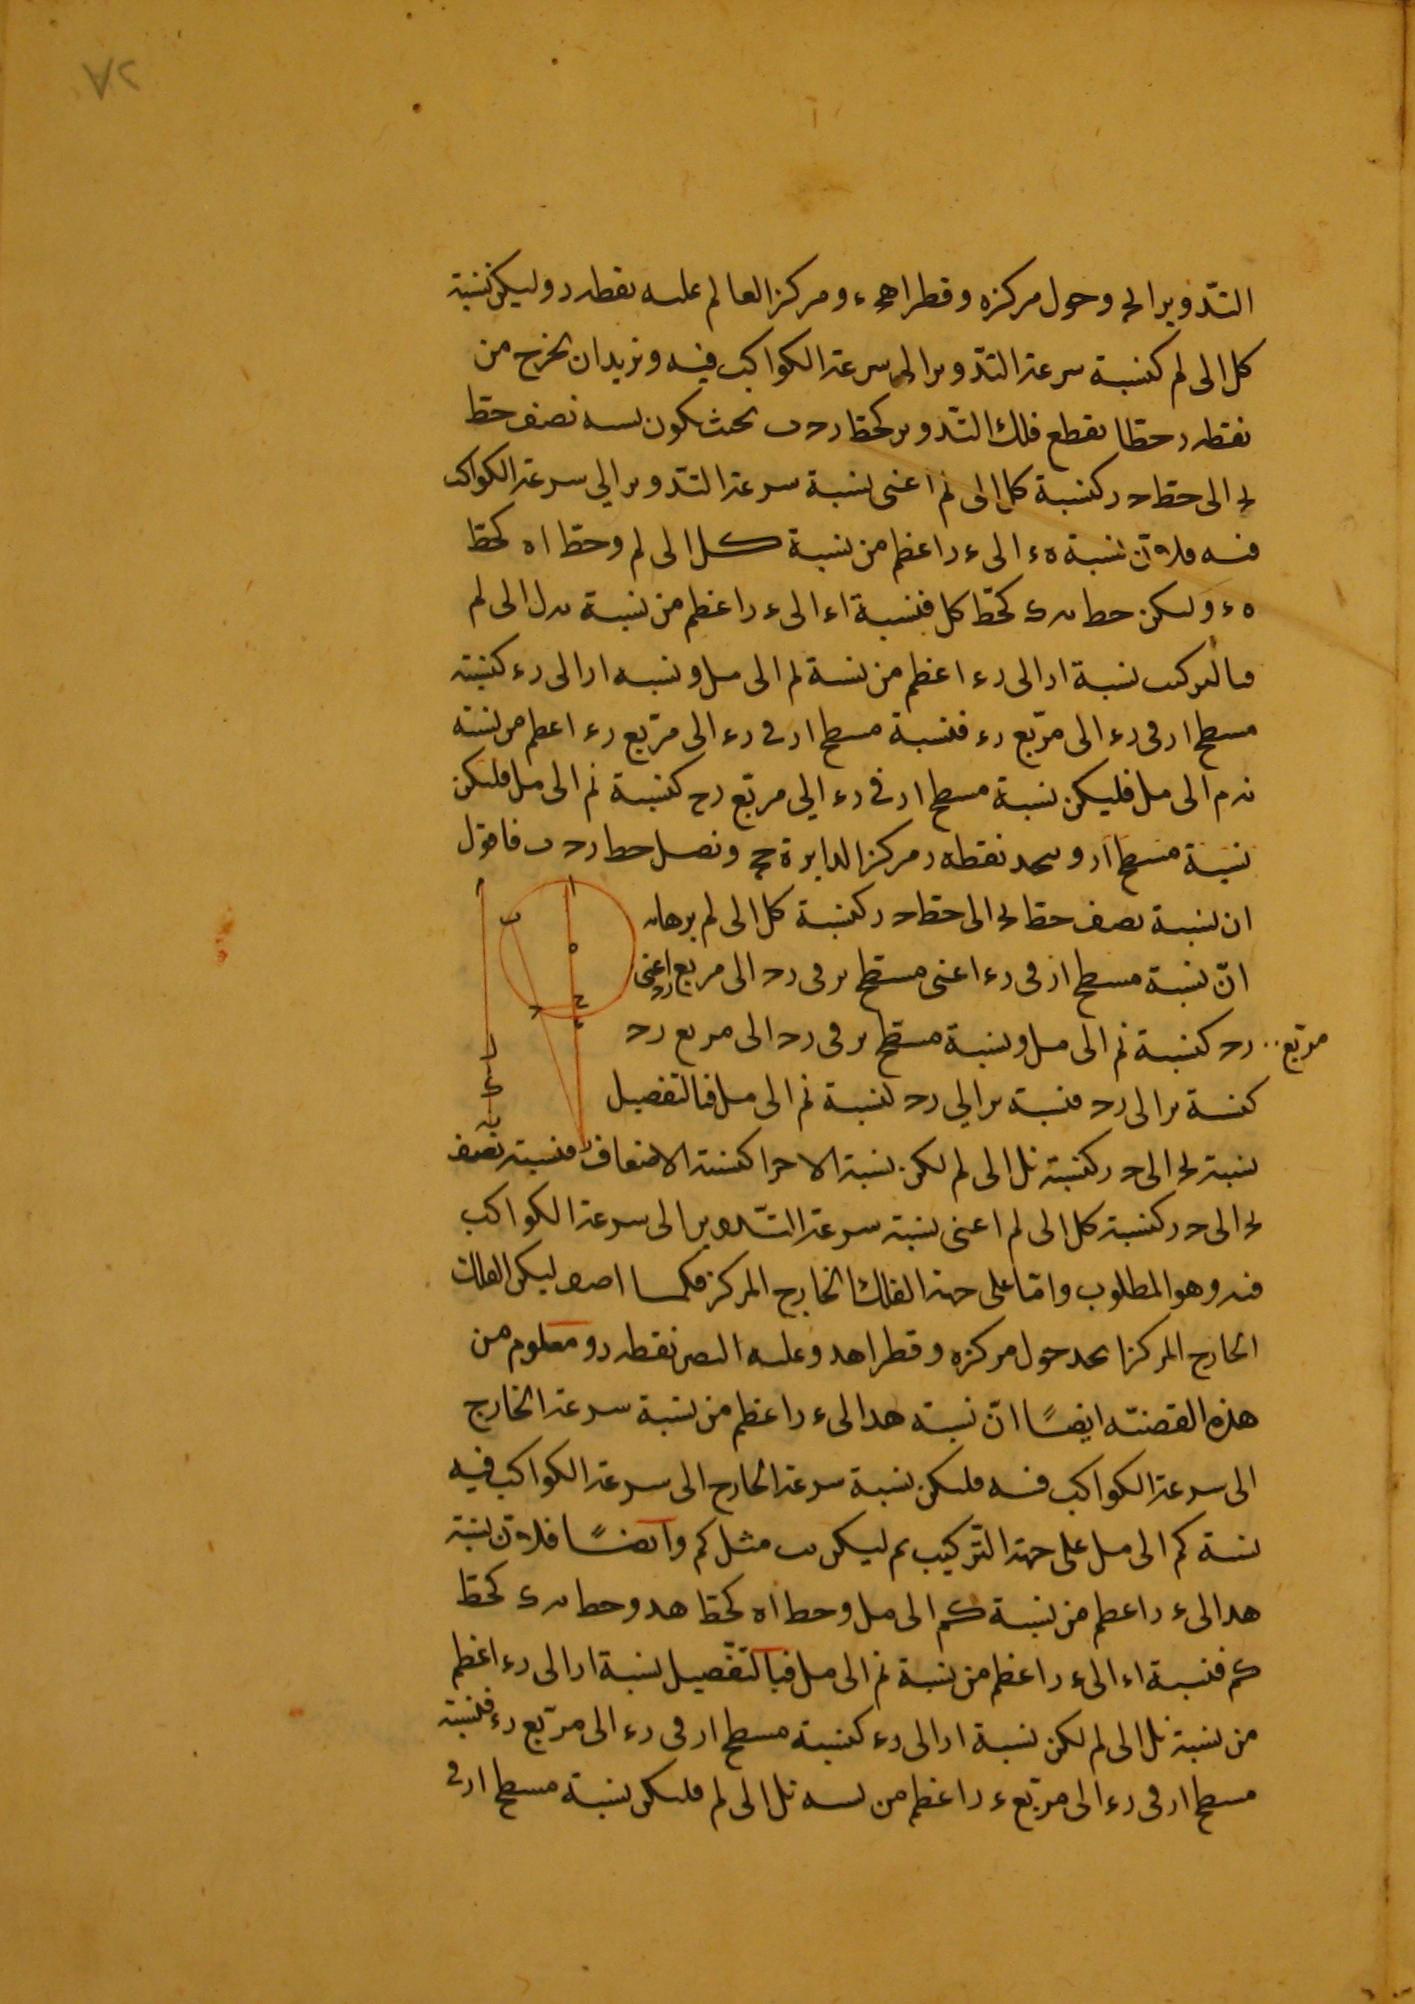 ٢٨
التدوير ا ح وحول مركزه وقطر ا ه ح ء ومركز العالم عليه نقطه ر وليكن نسبة
كل الى لم كنسبة سرعة التدوير الى سرعة الكواكب فيه ونريد ان نخرج من
نقطه ر خطا يقطع فلك التدوير كخط ر ح ب بحيث يكون نسبه نصف خط
الى خط ح ر كنسبة كل الى لم اعنى نسبة سرعة التدوير الي سرعة الكواكب
فيه فلان نسبة ه ء الى ء ر اعظم من نسبة كل الى لم وخط اه كخط
ه ء وليكن خط ن ك كخط كل فنسبة اء الى ء ر اعظم من نسبة ن ل الى لم
فبالتركيب نسبة ار الى رء اعظم من نسبة نم الى مل ونسبه ار الى رء كنسبة
مسطح ار فى رء الى مربع رء فنسبة مسطح ار فى رء الى مربع رء اعظم من نسبة
ن م الى مل فليكن نسبة مسطح ار فى رء الي مربع رح كنسبة نم الى مل فليكن
نسبة مسطح ار وببعد نقطه ر مركز الدايرة ح ونصل خط ر ح ب فاقول
ان نسبة نصف خط الى خط ح ر كنسبة كل الى لم برهانه
انّ نسبة مسطح ار فى رء اعنى مسطح بر فى رح الى مربع رح اعنى
مربع .. رح كنسبة نم الى مل ونسبة مسطح بر فى رح الى مربع رح
كنسبة بر الى رح فنسبة بر الي رح كنسبة نم الى مل فبالتفصيل
نسبة الى ح ر كنسبة نل الى لم لكن نسبة الاجزا كنسبة الاضعاف فنسبة نصف
الى ح ر كنسبة كل الى لم اعنى نسبة سرعة التدوير الى سرعة الكواكب
فيه وهو المطلوب وامّا على جهة الفلك الخارج المركز فكما اصف ليكن الفلك
الخارج المركز ابحد حول مركزه وقطر اهد وعليه البصر نقطه ر ومعلوم من
هذه القضيّة ايضًا انّ نسبة هد الى ء ر اعظم من نسبة سرعة الخارج
الى سرعة الكواكب فيه فليكن نسبة سرعة الخارج الى سرعة الكواكب فيه
نسبة كم الى مل على جهة التركيب ثم ليكن مثل كم وايضًا فلان نسبة
هد الى ء ر اعظم من نسبة كم الى مل وخط اه كخط هد وخط ن ك كخط
كم فنسبة اء الى ء ر اعظم من نسبة نم الى مل فبالتفصيل نسبة ار الى رء اعظم
من نسبة نل الى لم لكن نسبة ار الى رء كنسبة مسطح ار فى رء الى مربع رء فنسبة
مسطح ار فى رء الى مربع ء ر اعظم من نسبة نل الى لم فليكن نسبة مسطح ار فى